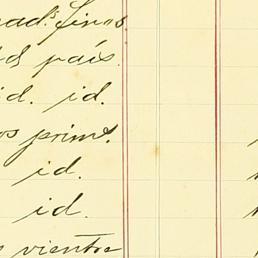 finos
país.
id. id.
prims.
id.
id.
vientre